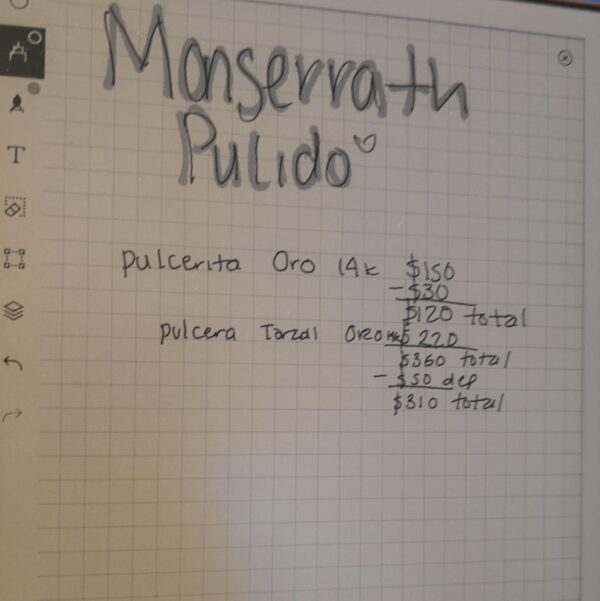 Monserrath
Pulido
T
Pulcerita Oro 14k $150
-$30
$120 total
Pulcera Torzal Oro 14k $220
$360 total
- $50 dep
$310 total